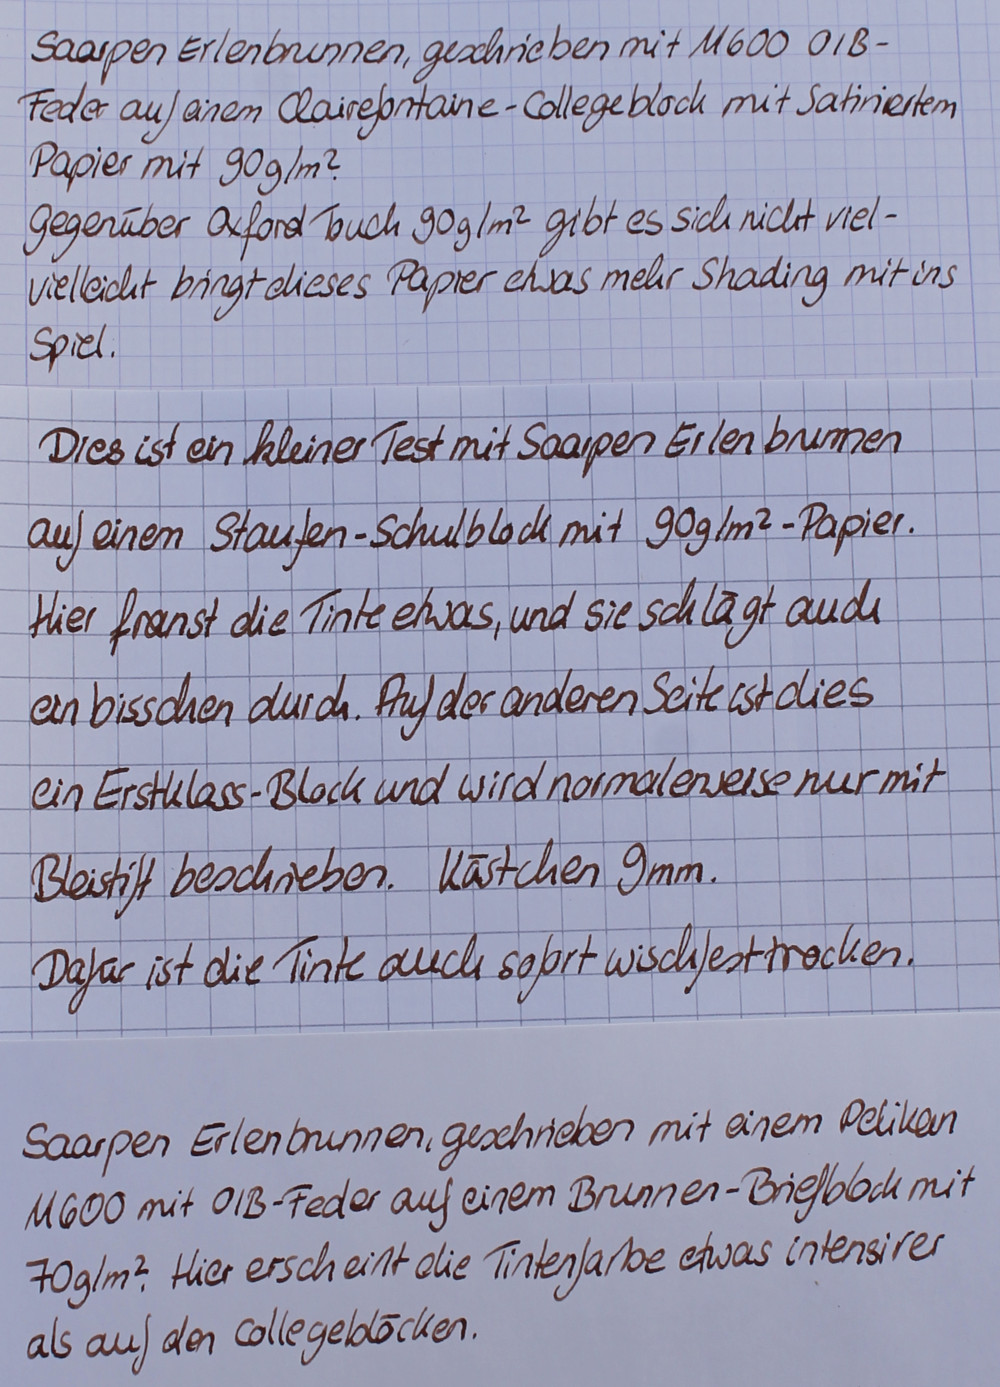 Saarpen Erlenbrunnen, geschrieben mit M600 OIB-
Feder auf einem Clairefontaine-Collegeblock mit Satiniertem
Papier mit 90g/m².
Gegenüber Oxford Touch 90g/m² gibt es sich nicht viel-
vielleicht bringt dieses Papier etwas mehr Shading mit ins
Spiel.
Dies ist ein kleiner Test mit Saarpen Erlenbrunnen
auf einem Staufen-Schulblock mit 90g/m²-Papier.
Hier franst die Tinte etwas, und sie schlägt auch
ein bisschen durch. Auf der anderen Seite ist dies
ein Erstklass-Block und wird normalerweise nur mit
Bleistift beschrieben. Kästchen 9mm.
Dafür ist die Tinte auch sofort wischfest trocken.
Saarpen Erlenbrunnen, geschrieben mit einem Pelikan
M600 mit OIB-Feder auf einem Brunnen-Briefblock mit
70g/m². Hier erscheint die Tintenfarbe etwas intensirer
als auf den Collegeblöcken.